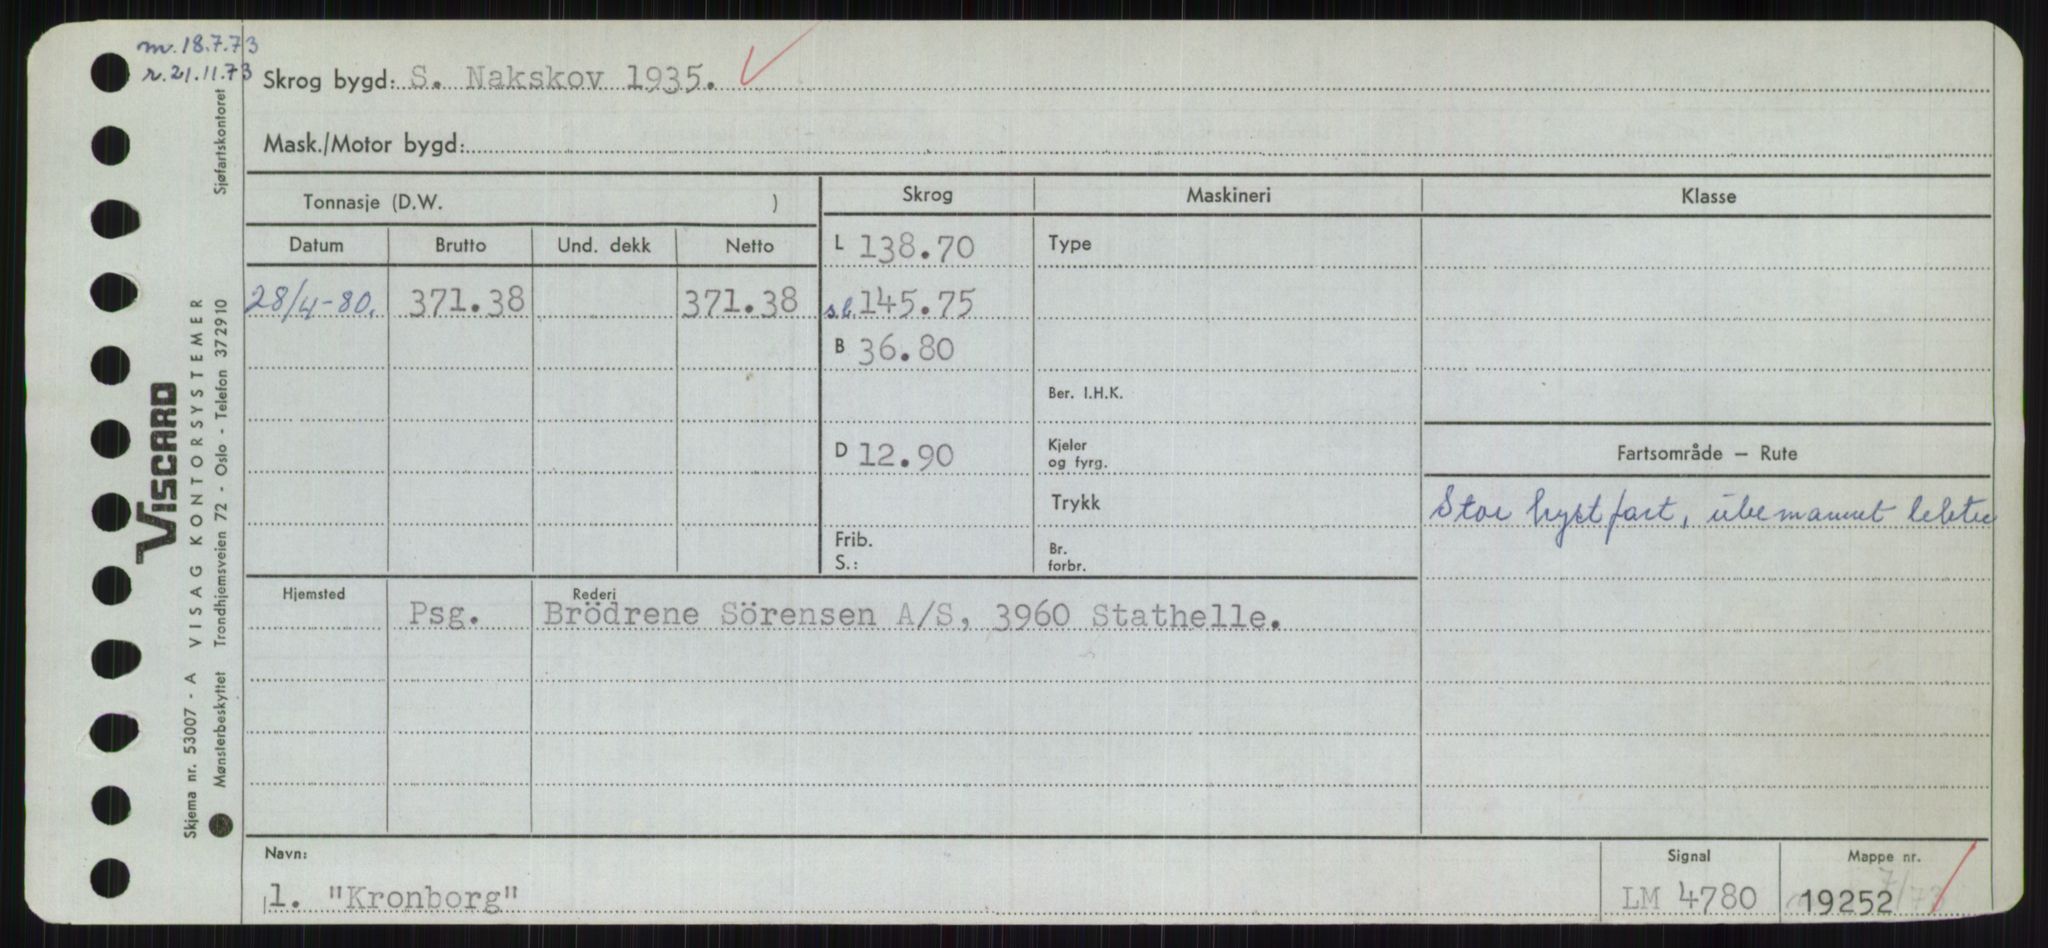 m. 18.7.73
r. 21.11.73
Skrog bygd: S. Nakskov 1935.
Mask./Motor bygd:
Tonnasje (D.W. )
Skrog
Maskineri
Klasse
Datum
Brutto
Und. dekk
Netto
L 138.70
Type
28/4-80.
371.38
371.38
s.l. 145.75
B 36.80
Ber. I.H.K.
D 12.90
Kjeler
og fyrg.
Fartsområde — Rute
Trykk
Stor kystfart, ubemannet lekter
Frib.
S.:
Br.
forbr.
Hjemsted
Rederi
Psg.
Brödrene Sörensen A/S, 3960 Stathelle.
Navn:
1. "Kronborg"
Signal
LM 4780
Mappe nr.
19252
7/73
VISCARD
VISAG KONTORSYSTEMER
Skjema nr. 53007 - A
Mønsterbeskyttet Trondhjemsveien 72 - Oslo - Telefon 372910
Sjøfartskontoret